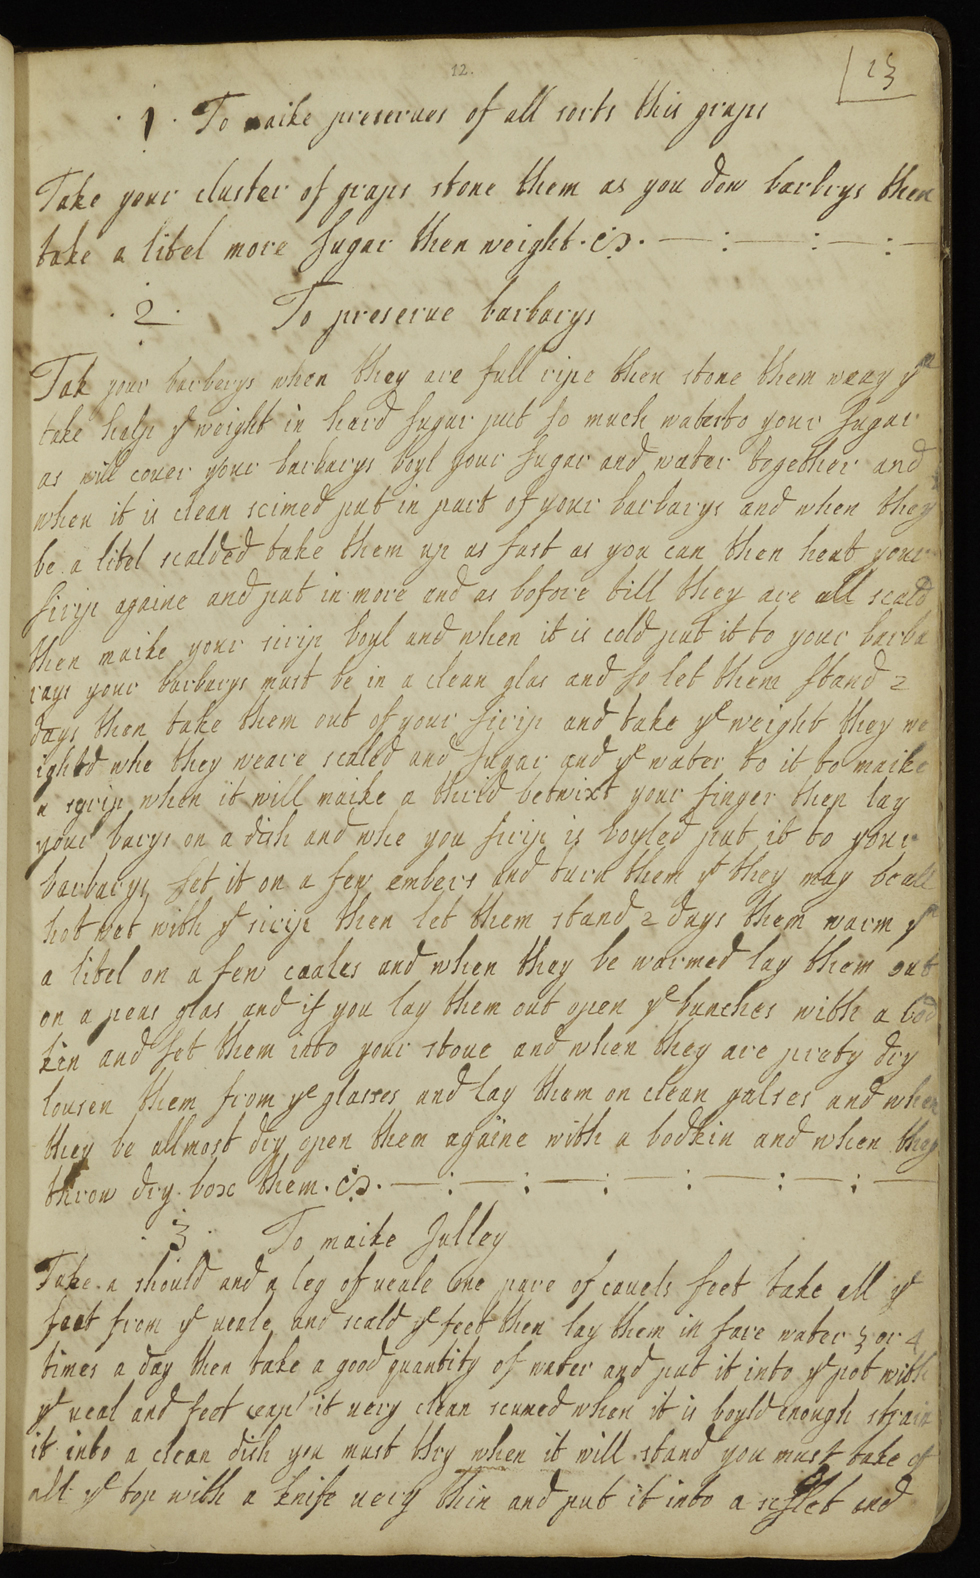 12.
23
1 To maike preserves of all sorts this graps
Take your cluster of graps stone them as you dow barbrys then
take a litel more sugar then weight
2 To preserue barbarys
Tak your barberys when they are full ripe then stone them weay yᵐ
take halfe yᵉ weight in hard sugar put so much water to your sugar
as will couer your barbarys boyl your sugar and water together and
when it is clean scimed put in part of your barbarys and when they
be a litel scalded take them up as fast as you can then heat your
sirip againe and put in more and as before till they are all scald
then maike your sirip boyl and when it is cold put it to your barba
rays your barbarys must be in a clean glas and so let them stand 2
days then take them out of your sirip and take yᵉ weight they we
ightd whe they weare scaled and sugar and yᵉ water to it to maike
a syrip when it will maike a thrid betwixt your finger then lay
your barys on a dish and whe you sirip is boyled put it to your
barbarys set it on a few embers and turn them yᵗ they may be all
hot wet with yᵉ sirip then let them stand 2 days them warm yᵐ
a litel on a few coales and when they be warmed lay them out
on a peas glas and if you lay them out open yᵉ bunches with a bod
kin and set them into your stoue and when they are prety dry
lousen them from yᵉ glasses and lay them on clean galses and when
they be allmost dry open them againe with a bodkin and when they
throw dry box them
3 To maike Julley
Take a should and a leg of ueale one pare of cauels feet take all yᵉ
feat from yᵉ ueale and scald yᵉ feet then lay them in fare water 3 or 4
times a day then take a good quantity of water and put it into yᵉ pot with
yᵉ ueal and feet it uery clean scumed when it is boyld enough strain
it into a clean dish you must thry when it will stand you must take of
all yᵉ top with a knife uery thin and put it into a and